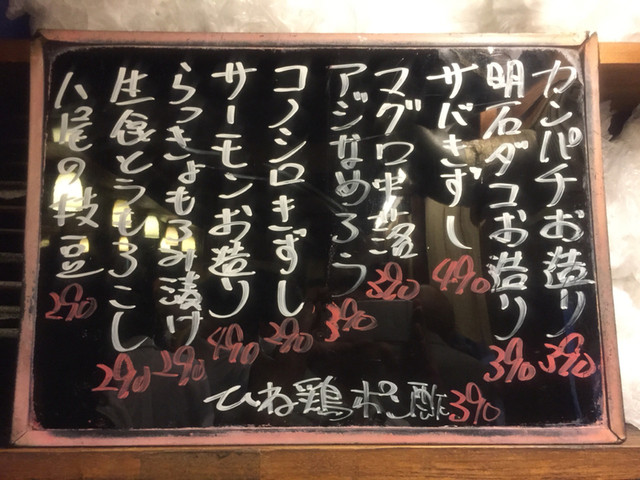 カンパチお造り 390
明石ダコお造り 390
サバきずし 490
マグロ中落 390
アジなめろう 390
コノシロきずし 290
サーモンお造り 490
らっきょもろみ漬け 290
生食とうもろこし 290
八尾の枝豆 290
ひね鶏ポン酢 390